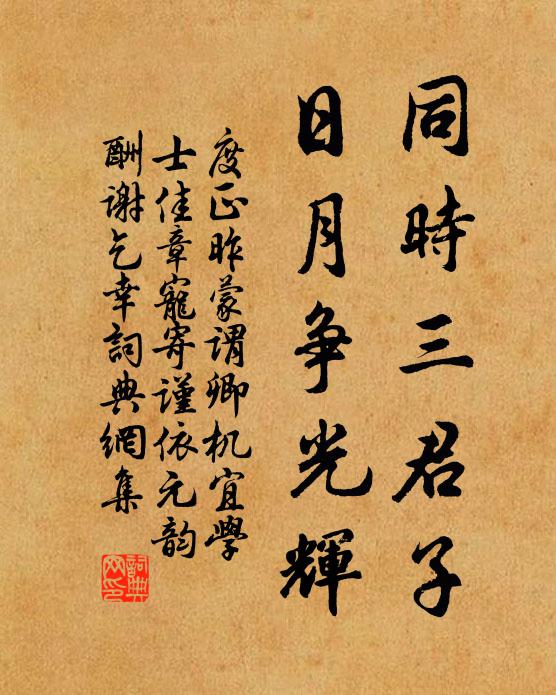 同時三君子
日月争光輝
度正昨蒙謂卿机宜學
士佳章寵寄謹依元韵
酬谢乞幸詞典網集
詞典
网印